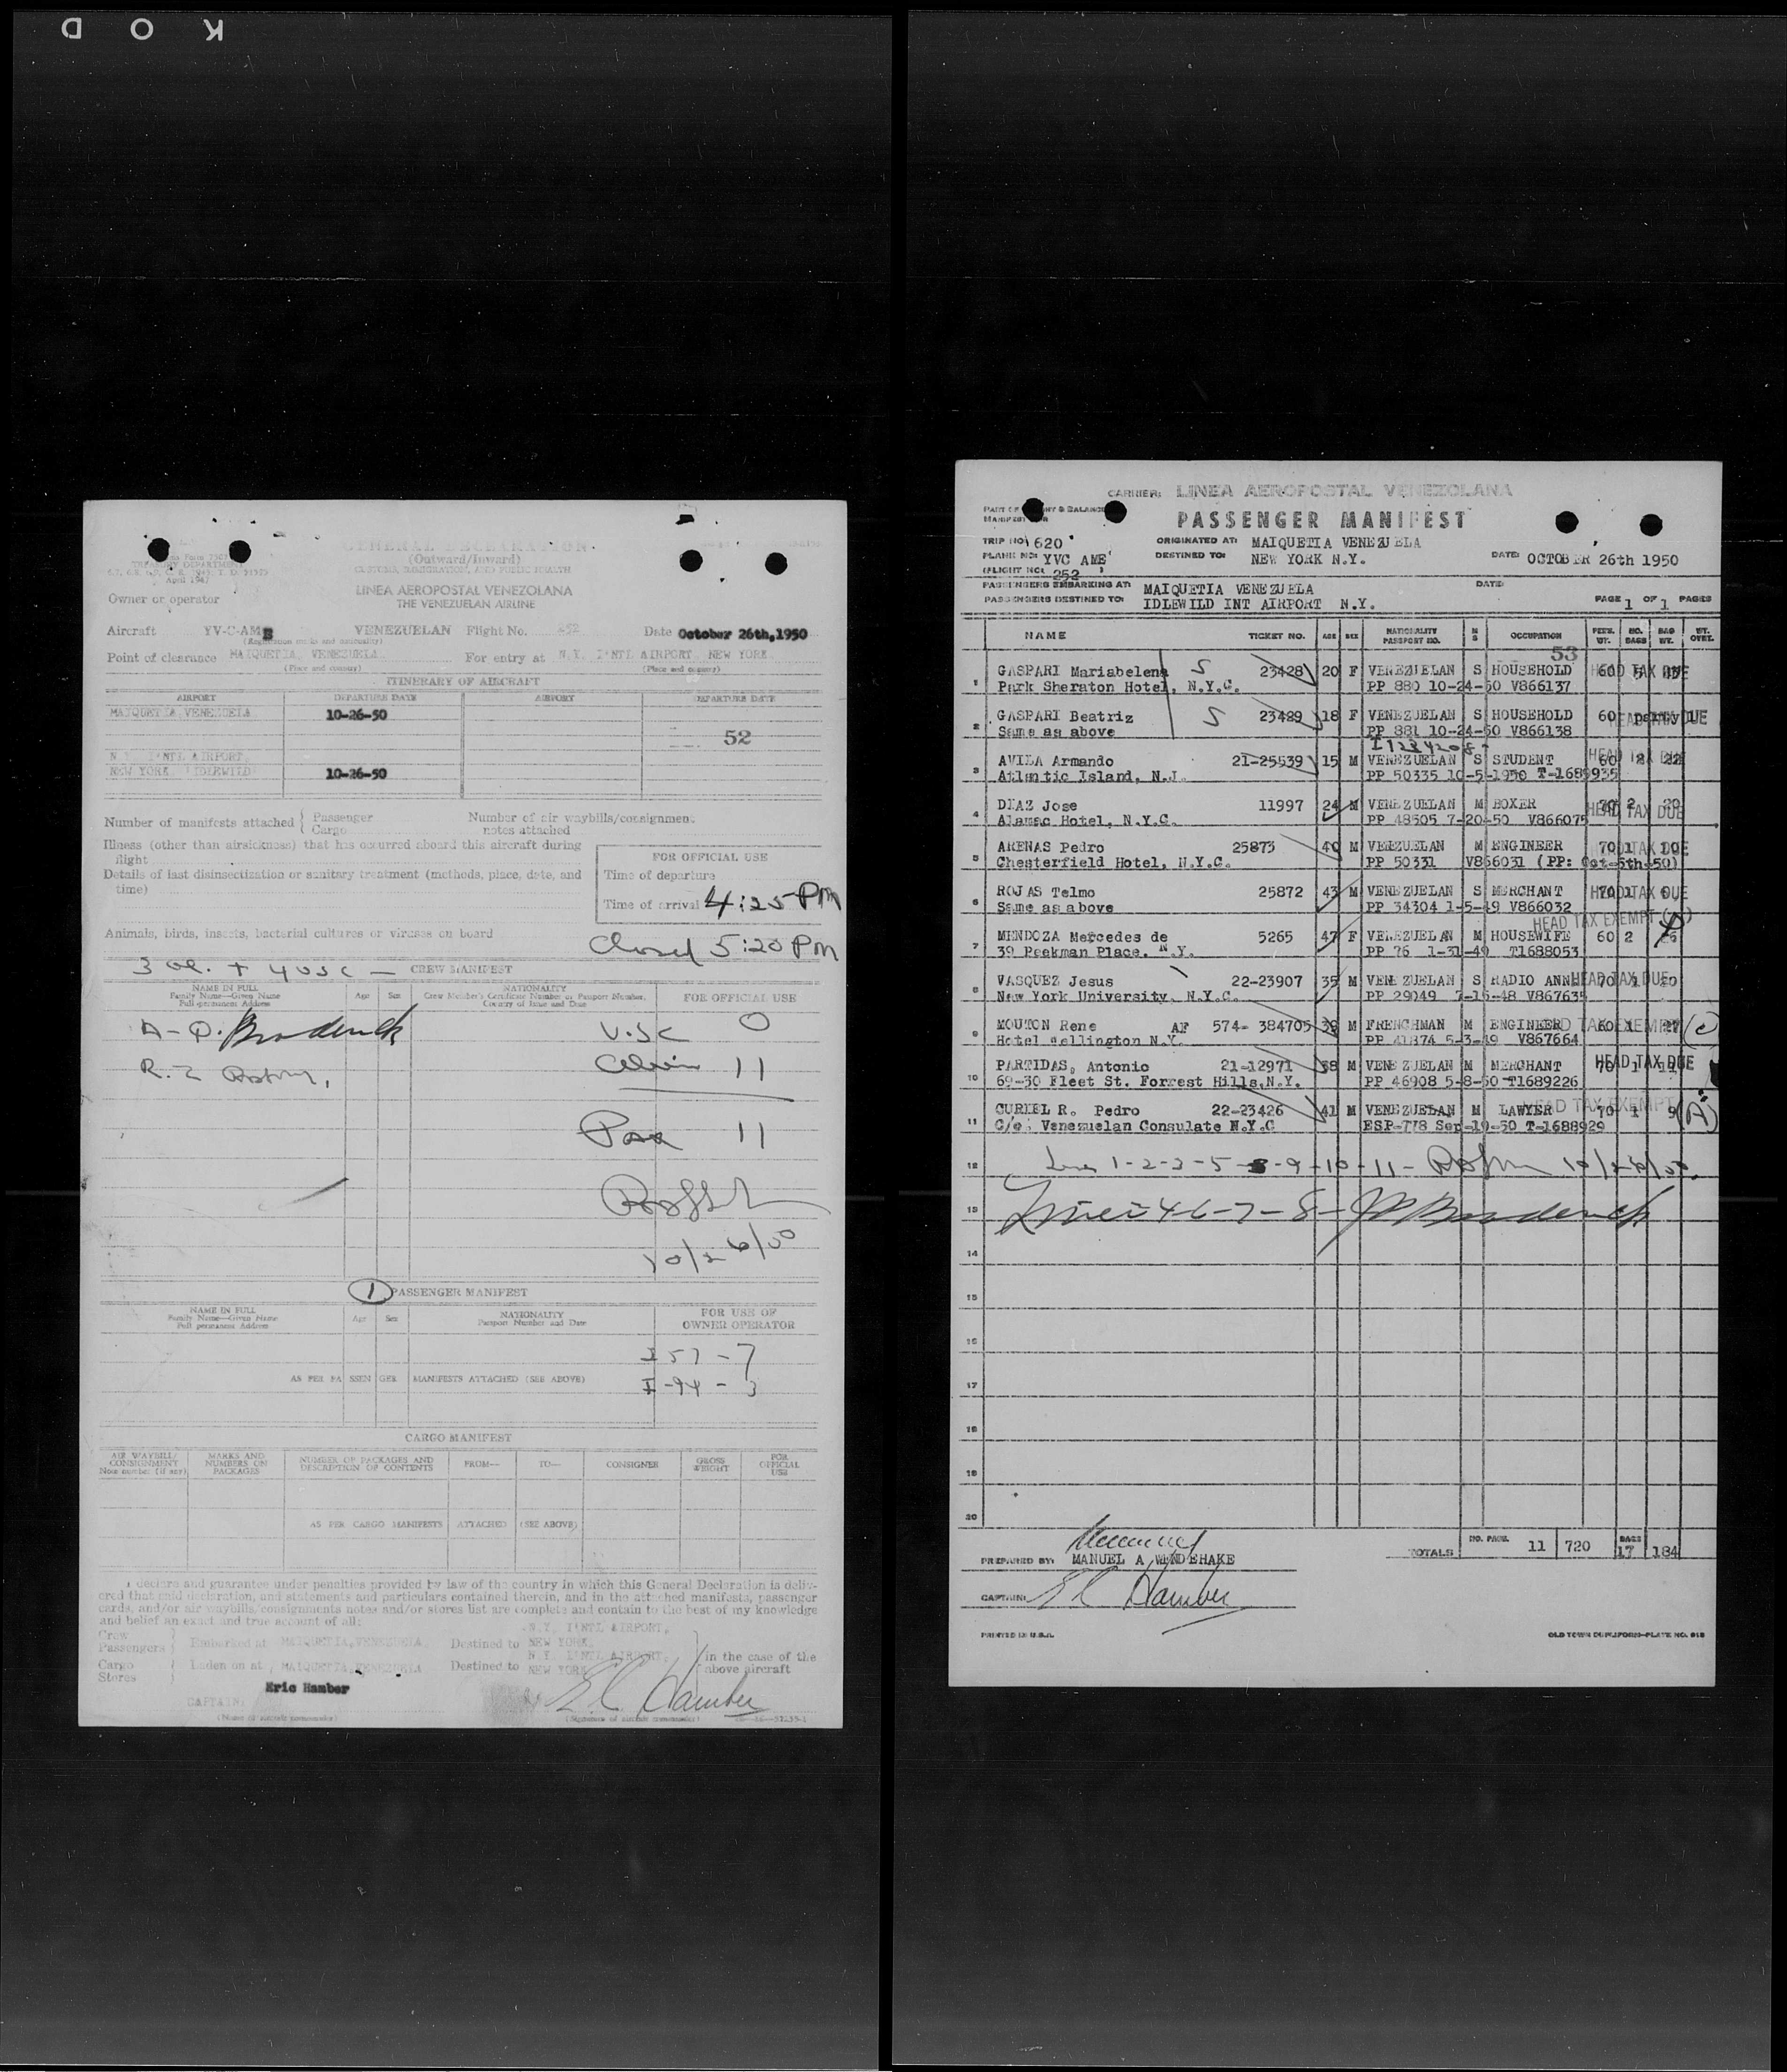 K O D
GENERAL DECLARATION
(Outward/Inward)
CUSTOMS, IMMIGRATION, AND PUBLIC HEALTH
TREASURY DEPARTMENT
April 1947
LINEA AEROPOSTAL VENEZOLANA
THE VENEZUELAN AIRLINE
Owner or operator
Aircraft YV-C-AME VENEZUELAN Flight No. 252 Date October 26th,1950
(Registration marks and nationality)
Point of clearance MAIQUETIA, VENEZUELA For entry at N.Y. I'NTL AIRPORT, NEW YORK.
(Place and country) (Place and country)
ITINERARY OF AIRCRAFT
AIRPORT DEPARTURE DATE AIRPORT DEPARTURE DATE
MAIQUETIA VENEZUELA 10-26-50
52
N.Y. I'NTL AIRPORT,
NEW YORK, IDLEWILD 10-26-50
Number of manifests attached { Passenger Cargo
Number of air waybills/consignment notes attached
Illness (other than airsickness) that has occurred aboard this aircraft during
flight
Details of last disinsectization or sanitary treatment (methods, place, date, and
time)
FOR OFFICIAL USE
Time of departure
Time of arrival 4:25 PM
Animals, birds, insects, bacterial cultures or viruses on board
Closed 5:20 PM
3 al. + 4 USC —
CREW MANIFEST
NAME IN FULL
Family Name—Given Name
Full permanent Address
Age Sex
NATIONALITY
Crew Member's Certificate Number or Passport Number,
Country of Issue and Date
FOR OFFICIAL USE
Broderick U.S.C 0
R. Z Alien 11
Pax 11
10/26/50
1 PASSENGER MANIFEST
NAME IN FULL
Family Name—Given Name
Full permanent Address
Age Sex
NATIONALITY
Passport Number and Date
FOR USE OF
OWNER OPERATOR
I 57 - 7
AS PER PASSENGER MANIFESTS ATTACHED (SEE ABOVE) I-94 - 3
CARGO MANIFEST
AIR WAYBILL/CONSIGNMENT Note number (if any)
MARKS AND NUMBERS ON PACKAGES
NUMBER OF PACKAGES AND DESCRIPTION OF CONTENTS
FROM— TO— CONSIGNER
GROSS WEIGHT
FOR OFFICIAL USE
AS PER CARGO MANIFESTS ATTACHED (SEE ABOVE)
I declare and guarantee under penalties provided by law of the country in which this General Declaration is deliv-
ered that said declaration, and statements and particulars contained therein, and in the attached manifests, passenger
cards, and/or air waybills/consignments notes and/or stores list are complete and contain to the best of my knowledge
and belief an exact and true account of all:
Crew
Passengers } Embarked at MAIQUETIA,VENEZUELA. Destined to N.Y. I'NTL AIRPORT, NEW YORK.
Cargo
Stores } Laden on at , MAIQUETIA,VENEZUELA Destined to N.Y. I'NTL AIRPORT, NEW YORK
in the case of the
above aircraft
Eric Hamber
CAPTAIN: E.C. Hamber
(Name of aircraft commander) (Signature of aircraft commander)
CARRIER: LINEA AEROPOSTAL VENEZOLANA
PASSENGER MANIFEST
TRIP NO: 620 ORIGINATED AT: MAIQUETIA VENEZUELA
PLANE NO: YVC AME DESTINED TO: NEW YORK N.Y. DATE: OCTOBER 26th 1950
(FLIGHT NO: 252 )
PASSENGERS EMBARKING AT: MAIQUETIA VENEZUELA DATE:
PASSENGERS DESTINED TO: IDLEWILD INT AIRPORT N.Y. PAGE 1 OF 1 PAGES
NAME TICKET NO. AGE SEX NATIONALITY PASSPORT NO. M S OCCUPATION PERS. WT. NO. BAGS BAG WT. WT. OVER.
53
1 GASPARI Mariabelena S 23428 20 F VENEZUELAN S HOUSEHOLD 60 HEAD TAX DUE
Park Sheraton Hotel, N.Y.C. PP 880 10-24-50 V866137
2 GASPARI Beatriz S 23489 18 F VENEZUELAN S HOUSEHOLD 60 HEAD TAX DUE
Same as above PP 881 10-24-50 V866138
3 AVILA Armando 21-25539 15 M VENEZUELAN S STUDENT 60 2 22 HEAD TAX DUE
Atlantic Island, N.J. PP 50335 10-5-1950 T-1689935
4 DIAZ Jose 11997 24 M VENEZUELAN M BOXER 70 2 20 HEAD TAX DUE
Alamac Hotel, N.Y.C. PP 48505 7-20-50 V866075
5 ARENAS Pedro 25873 40 M VENEZUELAN M ENGINEER 70 1 10 HEAD TAX DUE
Chesterfield Hotel, N.Y.C. PP 50331 V866031 (PP: Oct-5th-50)
6 ROJAS Telmo 25872 43 M VENEZUELAN S MERCHANT 70 1 6 HEAD TAX DUE
Same as above PP 34304 1-5-49 V866032
HEAD TAX EXEMPT
7 MENDOZA Mercedes de 5265 47 F VENEZUELAN M HOUSEWIFE 60 2 26
39 Peekman Place, N.Y. PP 76 1-31-49 T1688053
8 VASQUEZ Jesus 22-23907 35 M VENEZUELAN S RADIO ANN 70 1 20 HEAD TAX DUE
New York University, N.Y.C. PP 29049 7-16-48 V867635
9 MOUTON Rene AF 574- 384705 39 M FRENCHMAN M ENGINEER 60 1 27 HEAD TAX EXEMPT (C)
Hotel Wellington N.Y. PP 41874 5-3-49 V867664
10 PARTIDAS, Antonio 21-12971 38 M VENEZUELAN M MERCHANT 70 1 HEAD TAX DUE
69-30 Fleet St. Forrest Hills,N.Y. PP 46908 5-8-50 T1689226
11 CURIEL R. Pedro 22-23426 41 M VENEZUELAN M LAWYER 70 1 9 HEAD TAX EXEMPT (A)
C/o: Venezuelan Consulate N.Y.C ESP-778 Sep-19-50 T-1688929
12 Lines 1-2-3-5-9-10-11- 10/26/50
13 Lines 4-6-7-8- Broderick
14
15
16
17
18
19
20
TOTALS NO. PASS. 11 720 BAGS 17 184
PREPARED BY: MANUEL A, WENDEHAKE
CAPTAIN: E C Hamber
PRINTED IN U.S.A. OLD TOWN DUPLIFORM—PLATE NO. 618